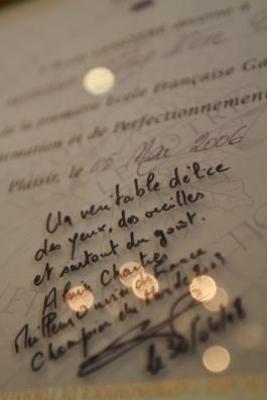 de la première Ecole Française Ga
rmation et de Perfectionnement
Plaisir, le 05 Mai 2006
Un véritable délice
des yeux, des oreilles
et surtout du goût.
Alain Chartier
Meilleur ouvrier de France
Champion du Monde 2003
le 30/04/08